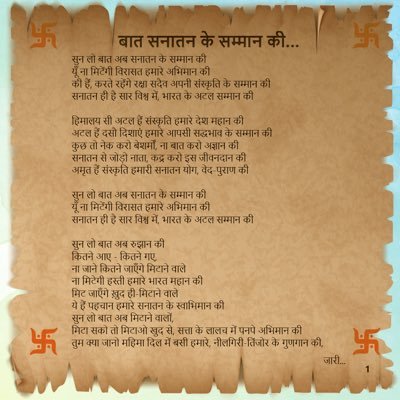 बात सनातन के सम्मान की...
सुन लो बात अब सनातन के सम्मान की
यूँ ना मिटेंगी विरासत हमारे अभिमान की
की हैं, करते रहेंगे रक्षा सदैव अपनी संस्कृति के सम्मान की
सनातन ही है सार विश्व में, भारत के अटल सम्मान की
हिमालय सी अटल हैं संस्कृति हमारे देश महान की
अटल हैं दसो दिशाएं हमारे आपसी सद्भभाव के सम्मान की
कुछ तो नेक करो बेशर्मों, ना बात करो अज्ञान की
सनातन से जोड़ो नाता, कद्र करो इस जीवनदान की
अमृत हैं संस्कृति हमारी सनातन योग, वेद-पुराण की
सुन लो बात अब सनातन के सम्मान की
यूँ ना मिटेंगी विरासत हमारे अभिमान की
सनातन ही है सार विश्व में, भारत के अटल सम्मान की
सुन लो बात अब रुझान की
कितने आए - कितने गए,
ना जाने कितने जाएँगे मिटाने वाले
ना मिटेगी हस्ती हमारे भारत महान की
मिट जाएँगे ख़ुद ही-मिटाने वाले
ये हैं पहचान हमारे सनातन के स्वाभिमान की
सुन लो बात अब मिटाने वालों,
मिटा सको तो मिटाओ खुद से, सत्ता के लालच में पनपे अभिमान की
तुम क्या जानो महिमा दिल में बसी हमारे, नीलगिरी-तिंजोर के गुणगान की,
जारी...
1